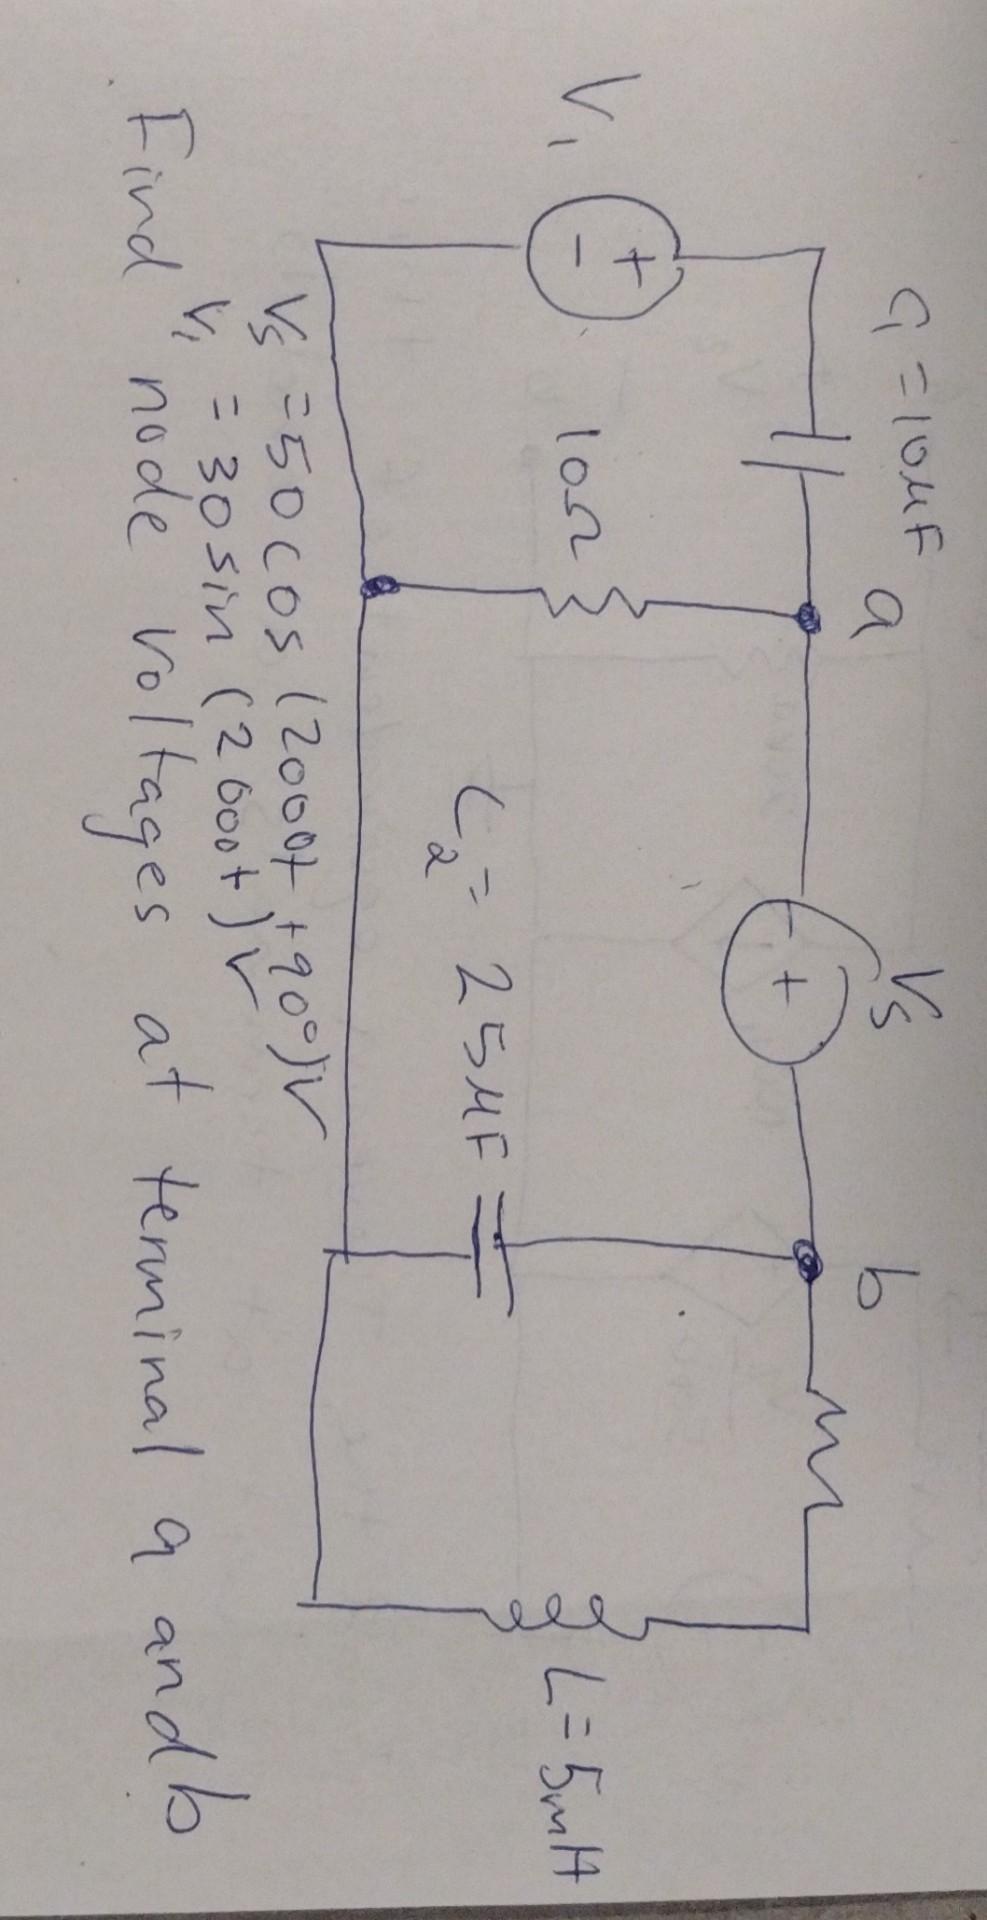 C₁ = 10μF
a
Vs
b
V₁
+
-
10Ω
- +
C₂ = 25μF
L = 5mH
Vs = 50 cos (2000t + 90°) V
V₁ = 30 sin (2000t) V
Find node voltages at terminal a and b